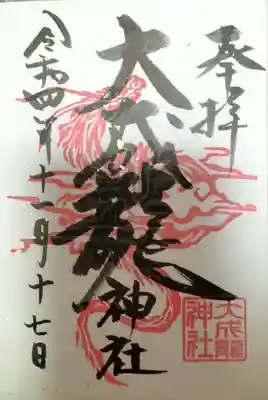 奉拝
大成龍神社
令和四年十二月十七日
大成龍
神社